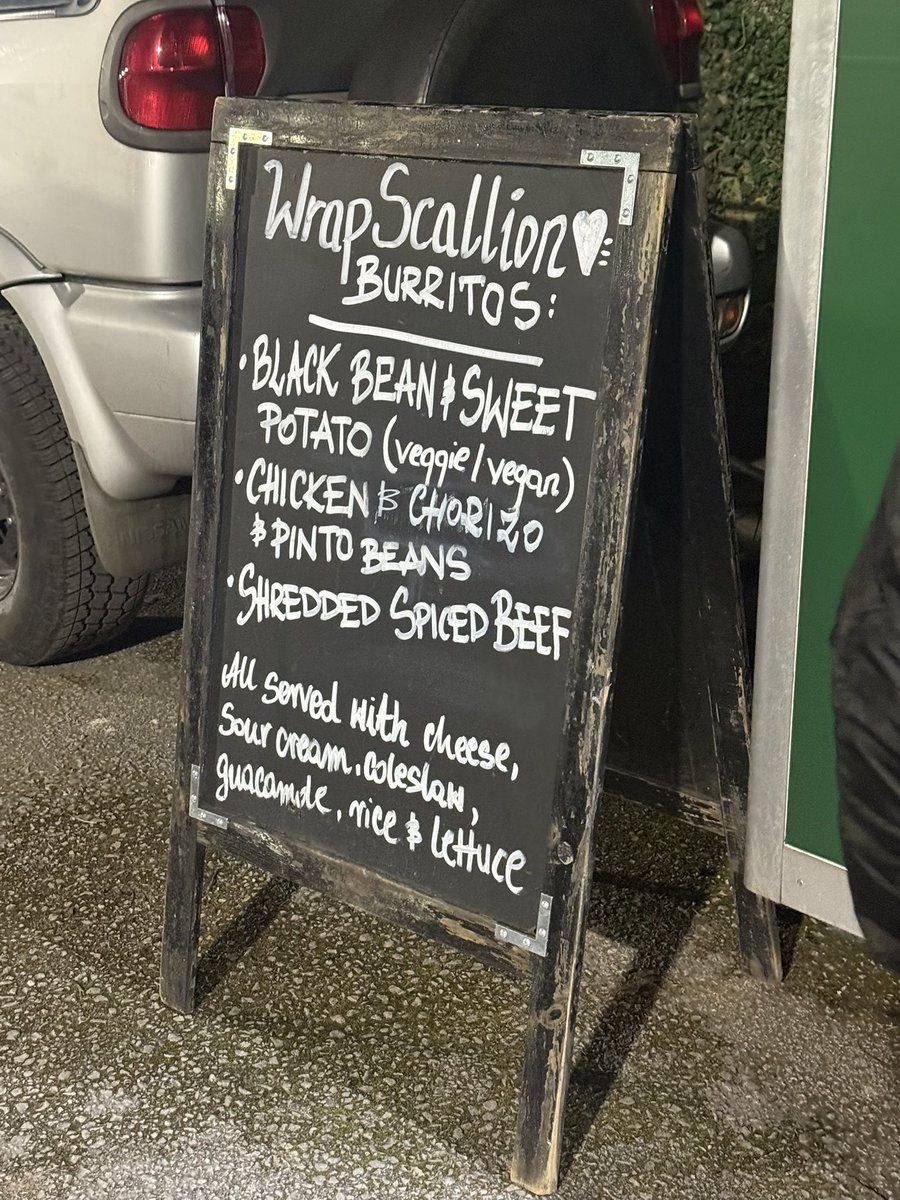 WrapScallion
BURRITOS:
• BLACK BEAN & SWEET
POTATO (veggie/vegan)
• CHICKEN & CHORIZO
& PINTO BEANS
• SHREDDED SPICED BEEF
All served with cheese,
sour cream, coleslaw,
guacamole, rice & lettuce
NISSAN